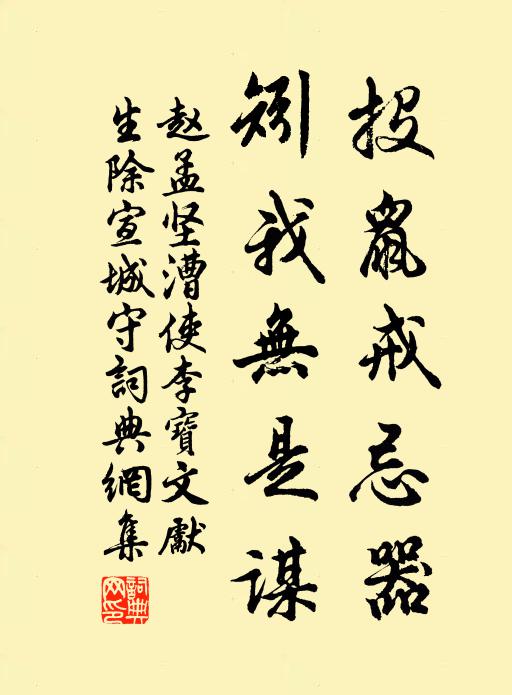 投鼠戒忌器
矧我無是謀
赵孟坚漕使李寶文獻
生除宣城守詞典網集
詞典
网印